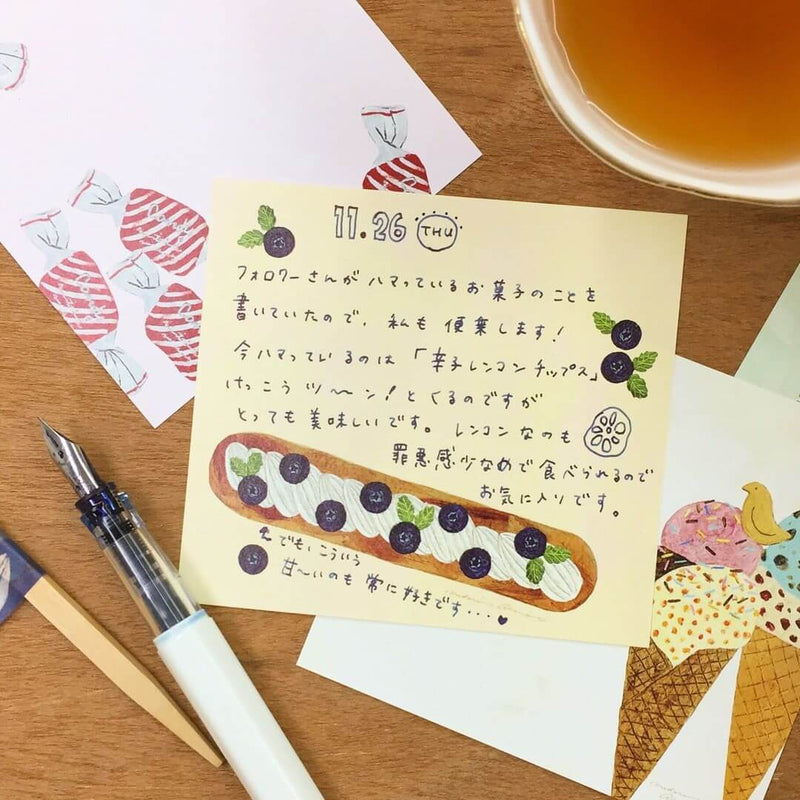 11.26 THU
フォロワーさんがハマっているお菓子のことを
書いていたので、私も便乗します!
今ハマっているのは「辛子レンコンチップス」
けっこうツ〜〜ン!とくるのですが
とっても美味しいです。レンコンなのも
罪悪感少なめで食べられるので
お気に入りです。
でも、こういう
甘〜いのも常に好きです...♥